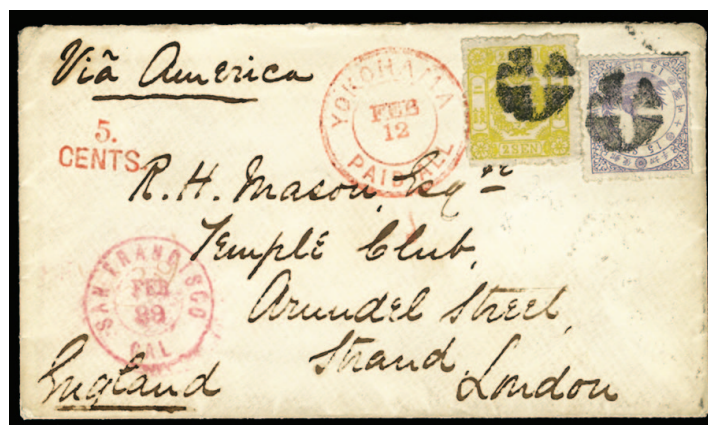 Viã America
YOKOHAMA
FEB
12
PAID ALL
2 SEN
5.
CENTS
R. H. Mason, Esqre
Temple Club,
Arundel Street,
Strand,
London
England
SAN FRANCISCO
FEB
29
CAL